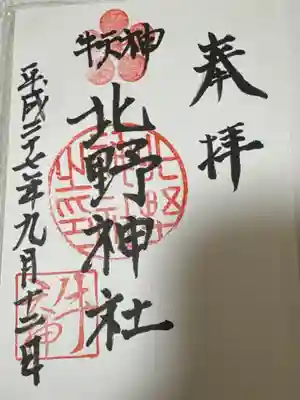 奉拝
牛天神
北野神社
平成二十七年九月十二日